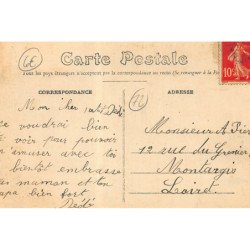 Carte Postale
Tous les pays étrangers n'acceptent pas la correspondance au recto (Se renseigner à la Poste)
CORRESPONDANCE
ADRESSE
Mon cher petit Dédé
Je voudrai bien
te voir pour pouvoir
m'amuser avec toi
bientôt embrasse
ta maman et ton
papa bien fort
Dédé
Monsieur A
12 rue du Grenier
Montargis
Loiret
10c